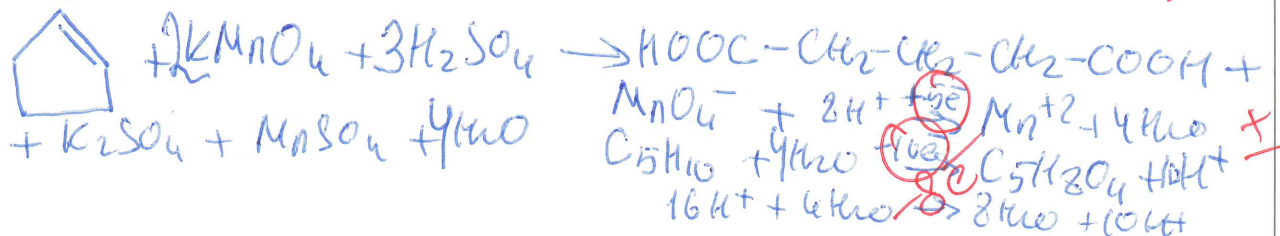 +2KMnO₄ + 3H₂SO₄ → HOOC–CH₂–CH₂–CH₂–COOH +
+ K₂SO₄ + MnSO₄ + 4H₂O
MnO₄⁻ + 8H⁺ +5ē → Mn⁺² + 4H₂O
C₅H₁₀ + 4H₂O → C₅H₈O₄ + 10H⁺
16H⁺ + 4H₂O → 8H₂O + 10H⁺